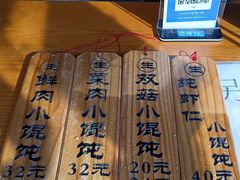 生鲜肉小馄饨32元
生菜肉小馄饨32元
生双菇小馄饨20元
生纯虾仁小馄饨40元